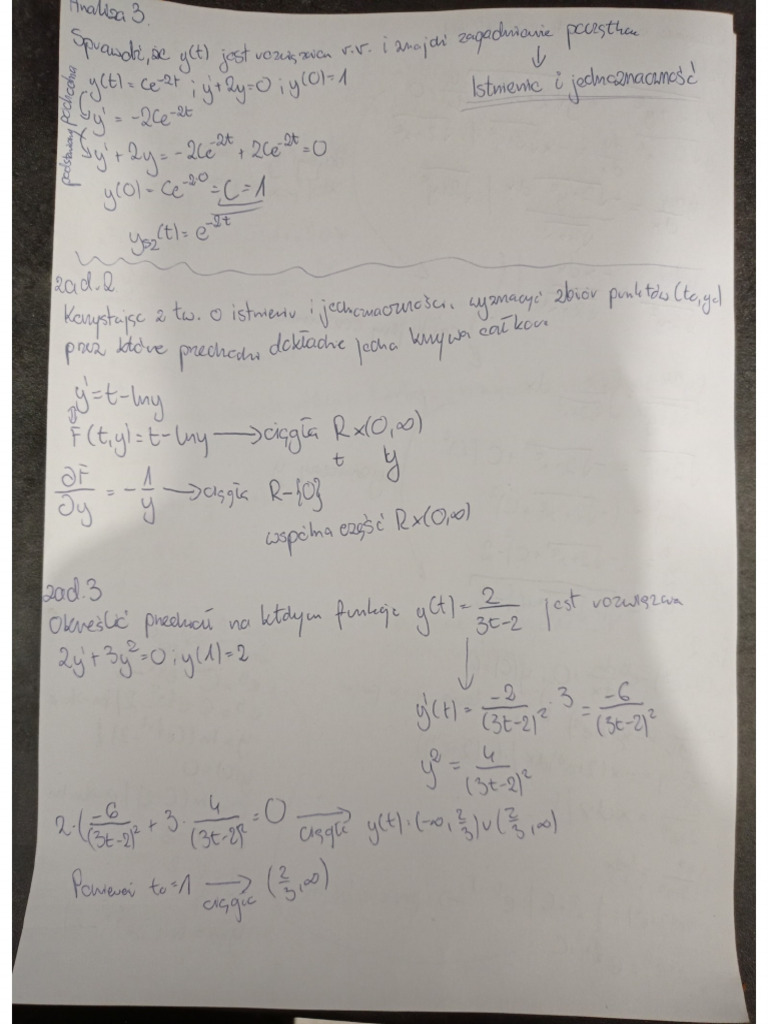 Analiza 3.
Sprawdź, że y(t) jest rozwiązaniem r.r. i znajdź zagadnienie początkowe
↓
Istnienie i jednoznaczność
y(t) = Ce^{-2t} ; y' + 2y = 0 ; y(0) = 1
podstawiamy pochodną
y' = -2Ce^{-2t}
y' + 2y = -2Ce^{-2t} + 2Ce^{-2t} = 0
y(0) = Ce^{-2·0} = C = 1
(t) = e^{-2t}
zad.2
Korzystając z tw. o istnieniu i jednoznaczności, wyznaczyć zbiór punktów (to, yo)
przez które przechodzi dokładnie jedna krzywa całkowa
y' = t - lny
F(t,y) = t - lny → ciągła R×(0,∞)
t y
∂F/∂y = -1/y → ciągła R-{0}
wspólna część R×(0,∞)
zad.3
Określić przedział na którym funkcja y(t) = 2/(3t-2) jest rozwiązaniem
2y' + 3y² = 0 ; y(1) = 2
↓
y'(t) = -2/(3t-2)² · 3 = -6/(3t-2)²
y² = 4/(3t-2)²
2·(-6/(3t-2)² + 3· 4/(3t-2)² = 0 → ciągłość y(t)·(-∞, 2/3) ∪ (2/3, ∞)
Ponieważ to = 1 → ciągłość (2/3, ∞)